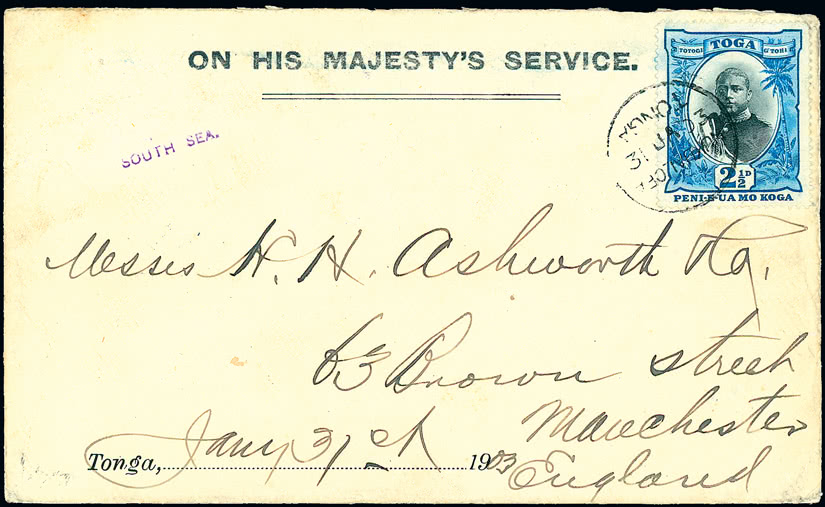 ON HIS MAJESTY'S SERVICE.
TOTOGI TOGA
2½D
PENI·E·UA MO KOGA
TONGA
31 JA 03
SOUTH SEA.
Messrs H. H. Ashworth & Co.
63 Brown Street
Manchester
England
Tonga, Jany 31st 1903